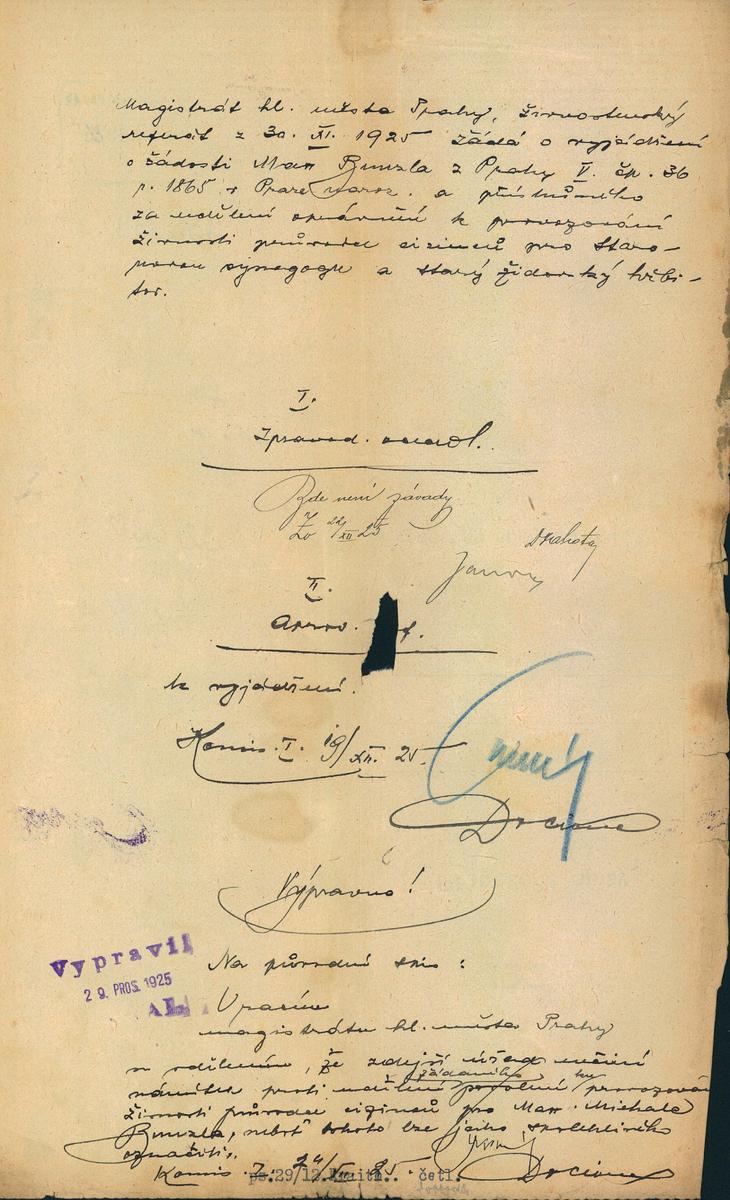 Magistrát hl. města Prahy, živnostenský
referát z 30. XI. 1925 žádá o vyjádření
o žádosti Max Bunzla z Prahy V. čp. 36
r. 1865 v Praze naroz. a příslušného
za udělení oprávnění k provozování
živnosti průvodce cizinců pro Staro-
novou synagogu a starý židovský hřbi-
tov.
I.
Zpravod. odděl.
Zde není závady
22/XII 25
II.
k vyjádření.
Komis. I. 19/XII. 25
Výpravno!
Vypravil
29. PROS. 1925
Na původní spis:
Vrácím
magistrátu hl. města Prahy
se sdělením, že zdejší úřad nečiní
žádaného
námitek proti udělení povolení provozování
živnosti průvodce cizinců pro Max Michale
Bunzla, neboť tohoto lze jako spolehlivého
označiti.
Komis. I. 24/XII 25.
ps. 29/12. četl.